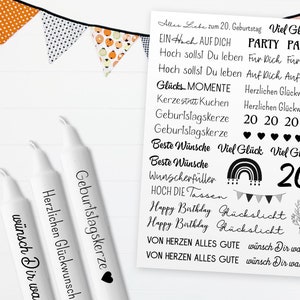 Alles Liebe zum 20. Geburtstag Viel Glück
EIN Hoch AUF DICH PARTY
Hoch sollst Du leben Für Dich Für Dich
Hoch sollst Du leben Auf Dich Auf Dich
Glücks MOMENTE Herzlichen Glückwunsch
Kerze statt Kuchen Herzlichen Glückwunsch
Geburtstagskerze 20 20 20 20
Geburtstagskerze
Beste Wünsche Viel Glück Viel Glück
Beste Wünsche 20
Wunscherfüller
HOCH DIE Tassen
Happy Birthday Glückslicht
Happy Birthday Glückslicht
VON HERZEN ALLES GUTE wünsch Dir was
VON HERZEN ALLES GUTE wünsch Dir
wünsch Dir wa
Herzlichen Glückwunsch
Geburtstagskerze